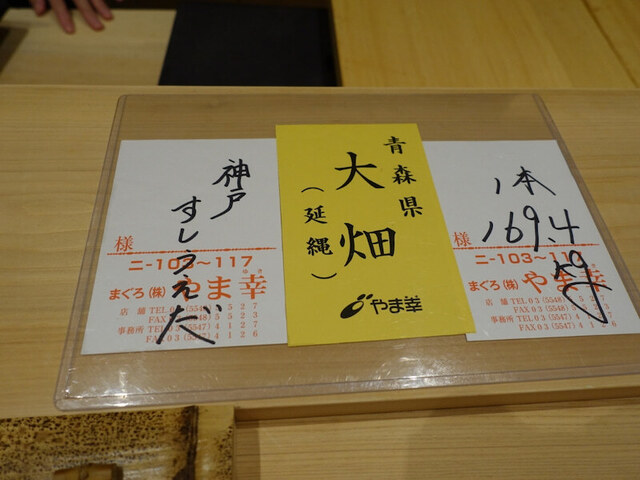 神戸
すしうえだ
様
ニ-103~117
まぐろ(株) やま幸
店舗 TEL 03 (5548) 5527
FAX 03 (5548) 5523
事務所 TEL 03 (5547) 4127
FAX 03 (5547) 4126
青森県
大畑
(延縄)
やま幸
1本
169.4
様
ニ-103~11
まぐろ(株) やま幸
店舗 TEL 03 (5548)
FAX 03 (5548)
事務所 TEL 03 (5547) 41
FAX 03 (5547) 4126